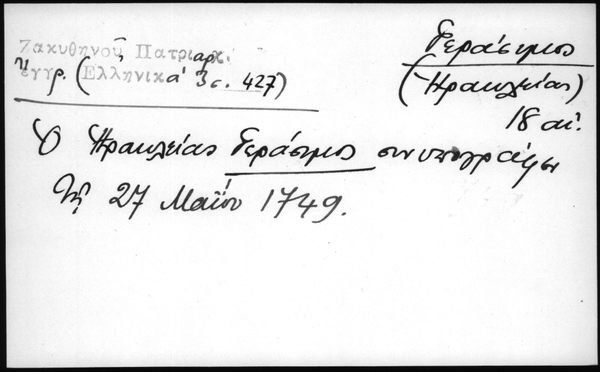 Ζακυθηνοῦ Πατριαρχ.
ἔγγρ. (Ἑλληνικά 3 σ. 427)
Γεράσιμος
(Ἡρακλείας)
18 αἰ.
Ὁ Ἡρακλείας Γεράσιμος συνυπογράφει
τῇ 27 Μαΐου 1749.